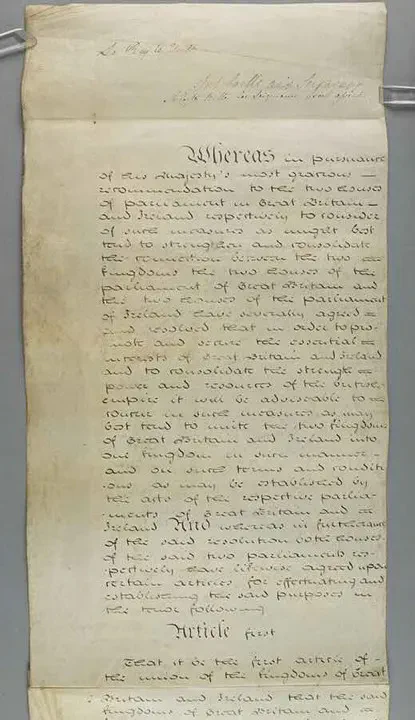 Le Roy le Veult
Soit baillé aux Seigneurs
A
Whereas in pursuance
of his Majesty's most gracious
recommendation to the two houses
of parliament in Great Britain
and Ireland respectively to consider
of such measures as might best
tend to strengthen and consolidate
the connection between the two
kingdoms the two houses of the
parliament of Great Britain and
the two houses of the parliament
of Ireland have severally agreed
and resolved that in order to pro-
mote and secure the essential
interests of Great Britain and Ireland
and to consolidate the strength
power and resources of the British
empire it will be adviseable to
concur in such measures as may
best tend to unite the two kingdoms
of Great Britain and Ireland into
one kingdom in such manner
and on such terms and conditi-
ons as may be established by
the acts of the respective parlia-
ments of Great Britain and
Ireland And whereas in furtherance
of the said resolution both houses
of the said two parliaments res-
pectively have likewise agreed upon
certain articles for effectuating and
establishing the said purposes in
the tenor following
Article first
That it be the first article of
the union of the kingdoms of Great
Britain and Ireland that the said
kingdoms of Great Britain and